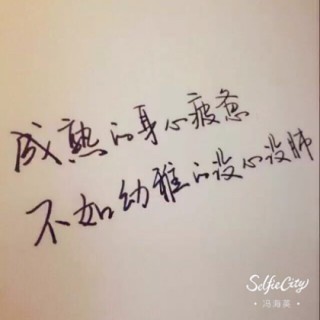 成熟的身心疲惫
不如幼稚的没心没肺
SelfieCity
·冯海英·